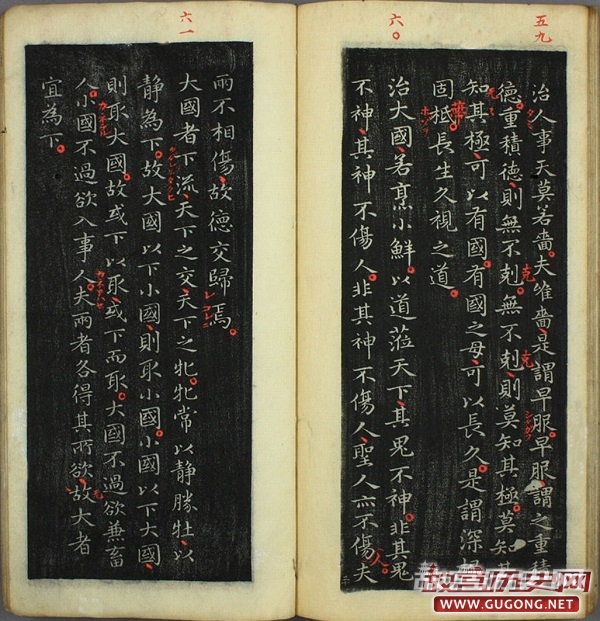 五九
治人事天莫若嗇夫惟嗇是謂早服早服謂之重積
德重積德則無不剋無不剋則莫知其極莫知
克
克
知其極可以有國有國之母可以長久是謂深
固柢長生久視之道
六〇
治大國若烹小鮮以道蒞天下其鬼不神非其鬼
不神其神不傷人非其神不傷人聖人亦不傷夫
人
兩不相傷故德交歸焉
六一
大國者下流天下之交天下之牝牝常以静勝牡以
静為下故大國以下小國則取小國小國以下大國
則取大國故或下以取或下而取大國不過欲兼畜
人小國不過欲入事人夫兩者各得其所欲故大者
宜為下
故宫历史网
WWW.GUGONG.NET